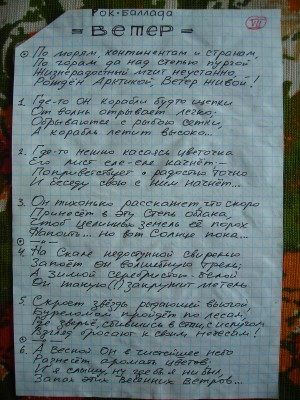 Рок-Баллада
= Ветер =
По морям, континентам и странам,
По горам да над степью пургой
Жизнерадостный мчит неустанно,
Рождён Арктикой, Ветер живой!
1. Где-то Он корабли будто щепки
От волны отрывает легко;
Обрываются с рыбою сетки,
А корабль летит высоко...
2. Где-то нежно касаясь цветочка
Его лист еле-еле качнёт —
Поприветствует с радостью точно
И беседу свою с ним начнёт...
3. Он тихонько расскажет, что скоро
Принесёт в эту Степь облака,
Стоит целинный земель её
но вот Солнце пока...
4. На Скале недоступной свирелью
Запоёт Он волшебную трель;
А зимой серебристо-белой
Он такую(!!) закружит метель
5. Скроет звёзды рыдающей вьюгой,
Буреломом пройдёт по лесам,
Где зверьё, сбившись в стаи, с испугом
Взгляд бросают к своим небесам!
6. А весной Он в чистейшее небо
Разнесёт ароматы цветов;
И я слышу, где б я ни был,
Запах этих Весенних Ветров...